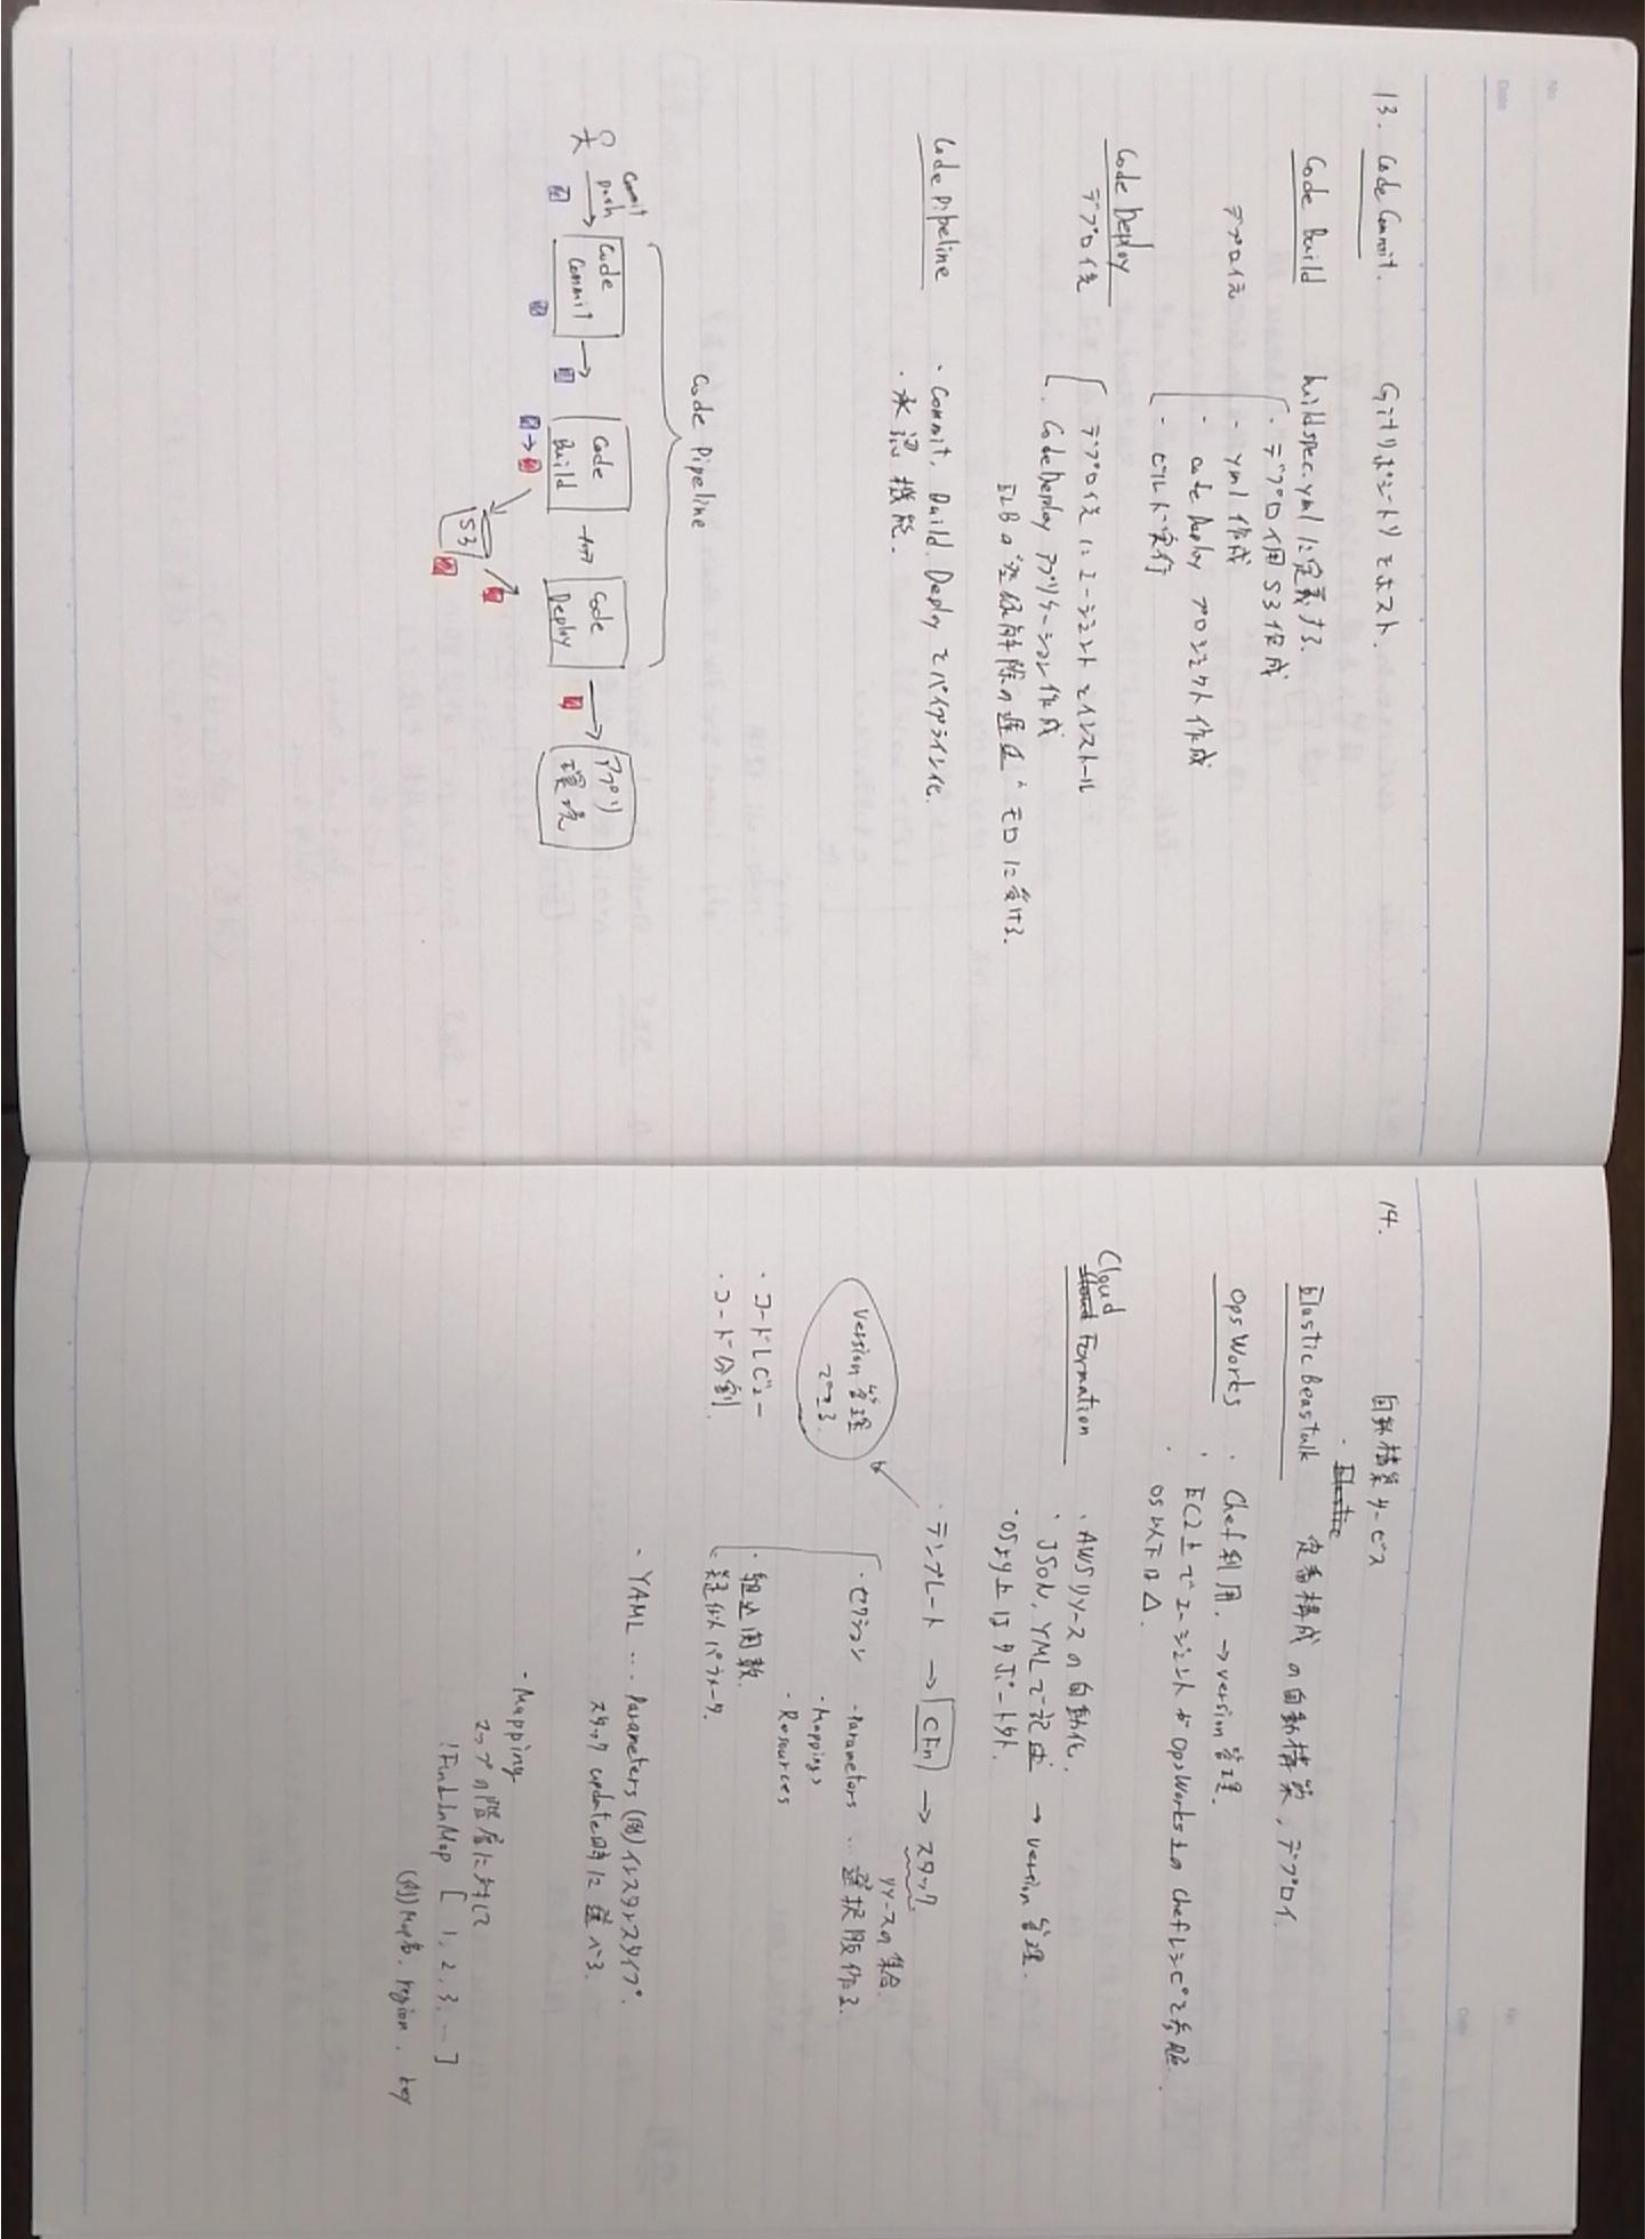 No.
Date
13. Code Commit.
Gitリポジートリをホスト.
Code Build
buildspec.ymlに定義する.
デプロイ元
・デプロイ用S3作成
・yml作成
・codeDeployプロジェクト作成
・ビルド実行
Code Deploy
デプロイ先
・デプロイ先にエージェントをインストール
・CodeDeployアプリケーション作成
ELBの"登録解除の遅延"モロに受ける.
Code Pipeline
・Commit, Build, Deployをパイプライン化.
・承認機能.
Code Pipeline
Commit
push
Code
Commit
Code
Build
Code
Deploy
アプリ
環境
S3
No.
Date
14.
自動構築サービス
・Elastice
Elastic Beastalk
定番構成の自動構築, デプロイ.
OpsWorks
・Chef利用. → version管理.
・EC2上でエージェントがOpsWorks上のChefレシピを参照.
・OS以下は△.
Cloud Formation
・AWSリソースの自動化.
・JSON, YMLで記述 → version管理.
・OSより上はサポート外.
・テンプレート → CFn → スタック
リソースの集合.
Version管理
できる.
・コードレビュー
・コード分割.
・セクション
・Parameters … 選択肢作る.
・Mappings
・Resources
・組込関数.
・疑似パラメータ.
・YAML … Parameters (例)インスタンスタイプ.
スタックupdate時に選べる.
・Mapping.
マップの階層に対して
!FindInMap [1, 2, 3, …]
(例)Map名, region, key